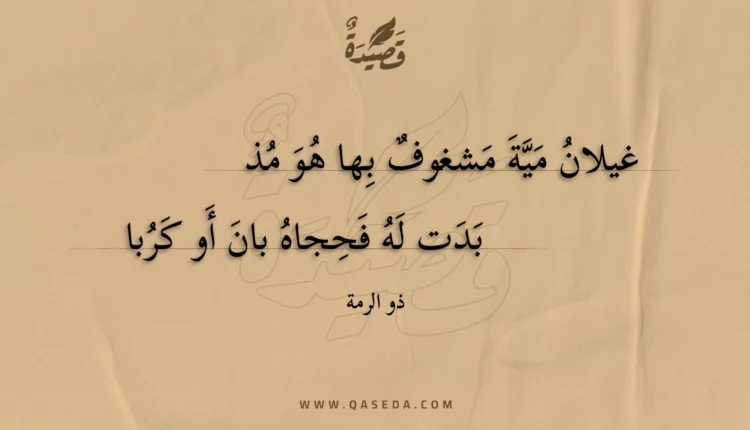 قَصِيْدَةٌ
غيلانُ مَيَّةَ مَشغوفٌ بِها هُوَ مُذ
بَدَت لَهُ فَحِجاهُ بانَ أَو كَرُبا
ذو الرمة
WWW.QASEDA.COM